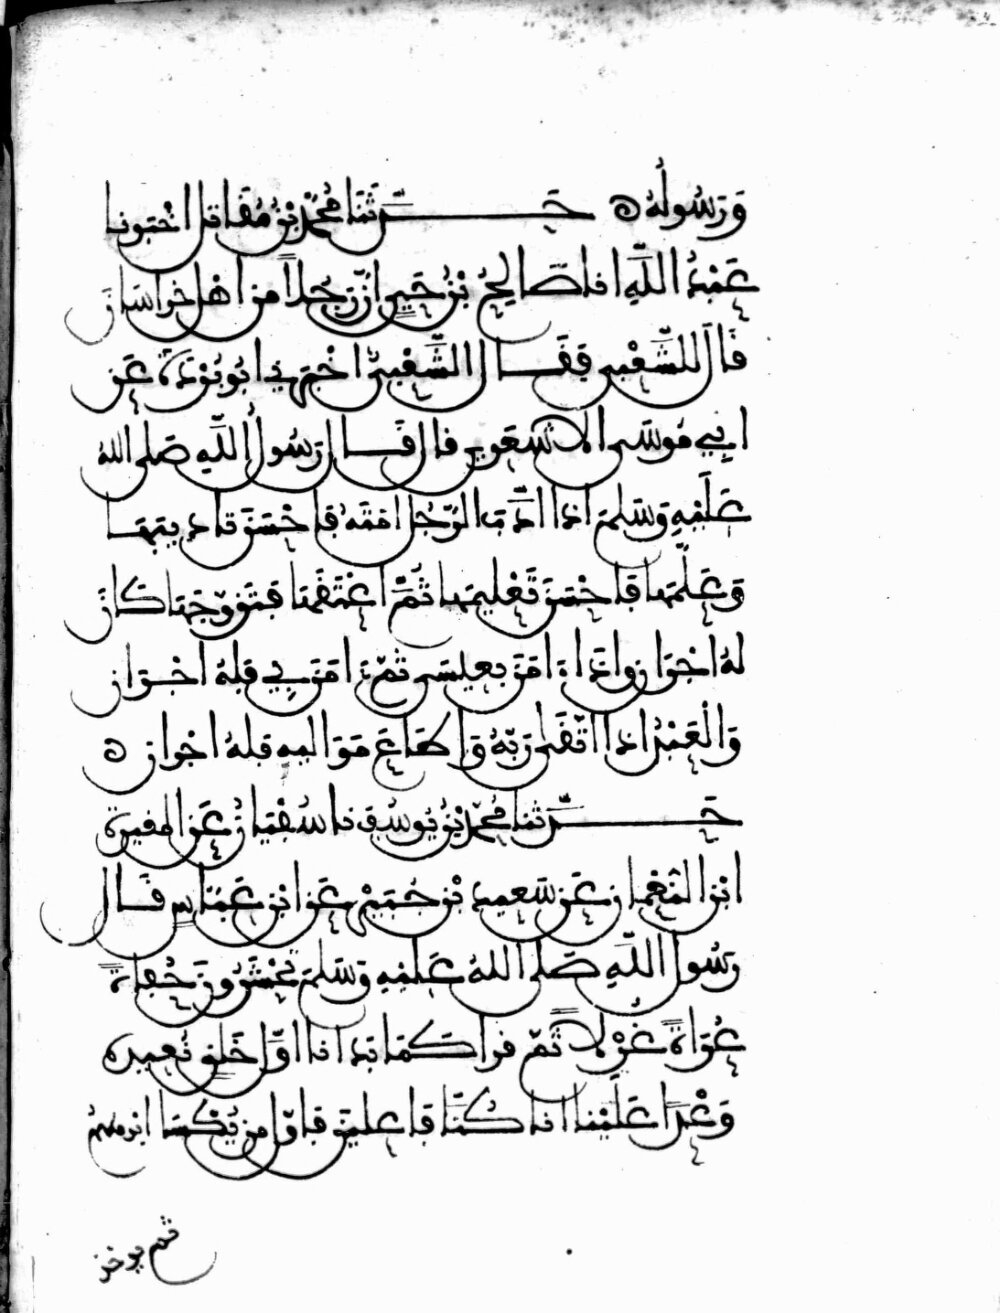 وَرَسُولُهُ ه حَدَّثَنَا مُحَمَّدُ بْنُ مُقَاتِل اخْبَرنا
عَبْدُ اللَّهِ انا صَّالِحُ بْنُ حَيِي انَّ رَجُلاً من اهْل خراسَانَ
قَالَ للشَّعْبِي فَقَال الشَّعْبِيُّ اخْبَرَنِي ابُو بُرْدَةَ عَن
ابِي مُوسَى الاشعَرِي قال قَال رَسُولُ اللَّهِ صَلى اللهُ
عَلَيْهِ وَسَلمَ اذا ادَّبَ الرَّجُلُ امَتَهُ فاحْسَنَ تاديبَهَا
وَعَلَّمَهَا فَاحْسَنَ تَعْلِيمَهَا ثُمَّ اعْتَقَهَا فَتَزَوَّجَهَا كَانَ
لهُ اجْرَان واذَا ءامَنَ بعِيسَى ثُمَّ ءامَنَ بِي فلهُ اجْرَان
وَالْعَبْدُ اذا اتَّقَى رَبَّهُ وَاطَاعَ مَوَاليه فلهُ اجْران ه
حَدَّثنا مُحَمَّدُ بْنُ يُوسُفَ نا سُفْيَانُ عَنِ المغيرة
ابْنِ النُّعْمان عَن سَعِيدِ بْنِ جُبَيْرٍ عَنِ ابْنِ عَبَّاسٍ قَال
رَسُولُ اللَّهِ صَلى اللهُ عَلَيْهِ وَسَلمَ تُحْشَرُونَ حُفاةً
عُرَاةً غُرْلاً ثُمَّ قرا كَمَا بَدَانا اوَّلَ خَلْقٍ نُعِيدُه
وَعْدًا عَلَيْنا انا كُنَّا فَاعِلِينَ فاوَّلُ من يُكْسَا ابْرهِيمُ
ثم يوخذ